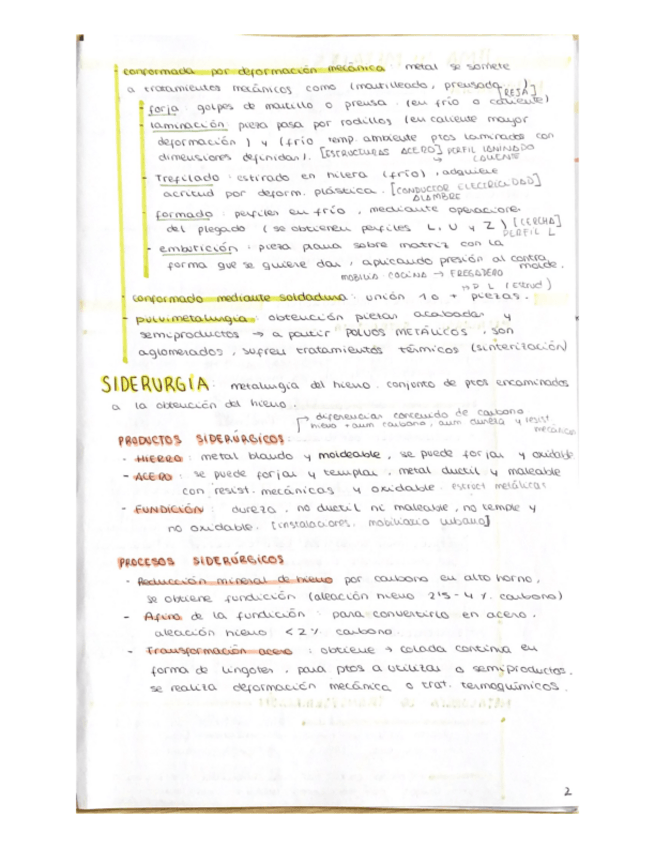 - conformada por deformación mecánica : metal se somete
a tratamientos mecánicos como (martilleado, prensada)
[REJA]
- forja golpes de martillo o prensa. (en frío o caliente)
- laminación: pieza pasa por rodillos (en caliente mayor
deformación) y (frío temp. ambiente ptos laminados con
dimensiones definidas). [ESTRUCTURAS ACERO] PERFIL LAMINADO
↳ CALIENTE
- Trefilado : estirado en hilera (frío), adquiere
acritud por deform. plástica. [CONDUCTOR ELECTRICIDAD]
ALAMBRE
- formado : perfiles en frío, mediante operaciones
del plegado (se obtienen perfiles L, U y Z) [CERCHA]
PERFIL L
- embutición : pieza plana sobre matriz con la
forma que se quiere dar, aplicando presión al contra
molde.
MOBILIA COCINA → FREGADERO
- conformado mediante soldadura : unión 1 o + piezas.
- pulvimetalurgia : obtención piezas acabadas y
semiproductos → a partir POLVOS METÁLICOS, son
aglomerados, sufren tratamientos térmicos (sinterización)
SIDERURGIA : metalurgia del hierro. conjunto de ptos encaminados
a la obtención del hierro.
→ diferencias contenido de carbono
hierro + aum carbono, aum dureza y resist.
mecánica
PRODUCTOS SIDERÚRGICOS :
- HIERRO : metal blando y moldeable, se puede forjar y oxidable
- ACERO : se puede forjar y templar, metal ductil y maleable
con resist. mecánicas y oxidable. estruct metálicas
- FUNDICIÓN : dureza, no ductil ni maleable, no temple y
no oxidable. [instalaciones, mobiliario urbano]
PROCESOS SIDERÚRGICOS
- Reducción mineral de hierro por carbono en alto horno,
se obtiene fundición (aleación hierro 2'5-4% carbono)
- Afino de la fundición : para convertirlo en acero.
aleación hierro < 2% carbono
- Transformación acero : obtiene → colada continua en
forma de lingotes, para ptos a utilizar o semiproductos.
se realiza deformación mecánica o trat. termoquímicos.
2